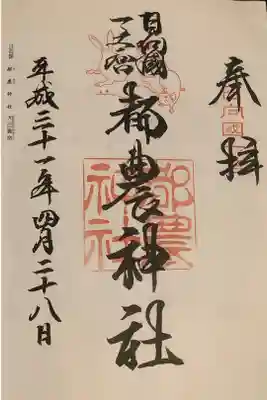 奉拝
日向國
一之宮
都農神社
平成三十一年四月二十八日
都農神社